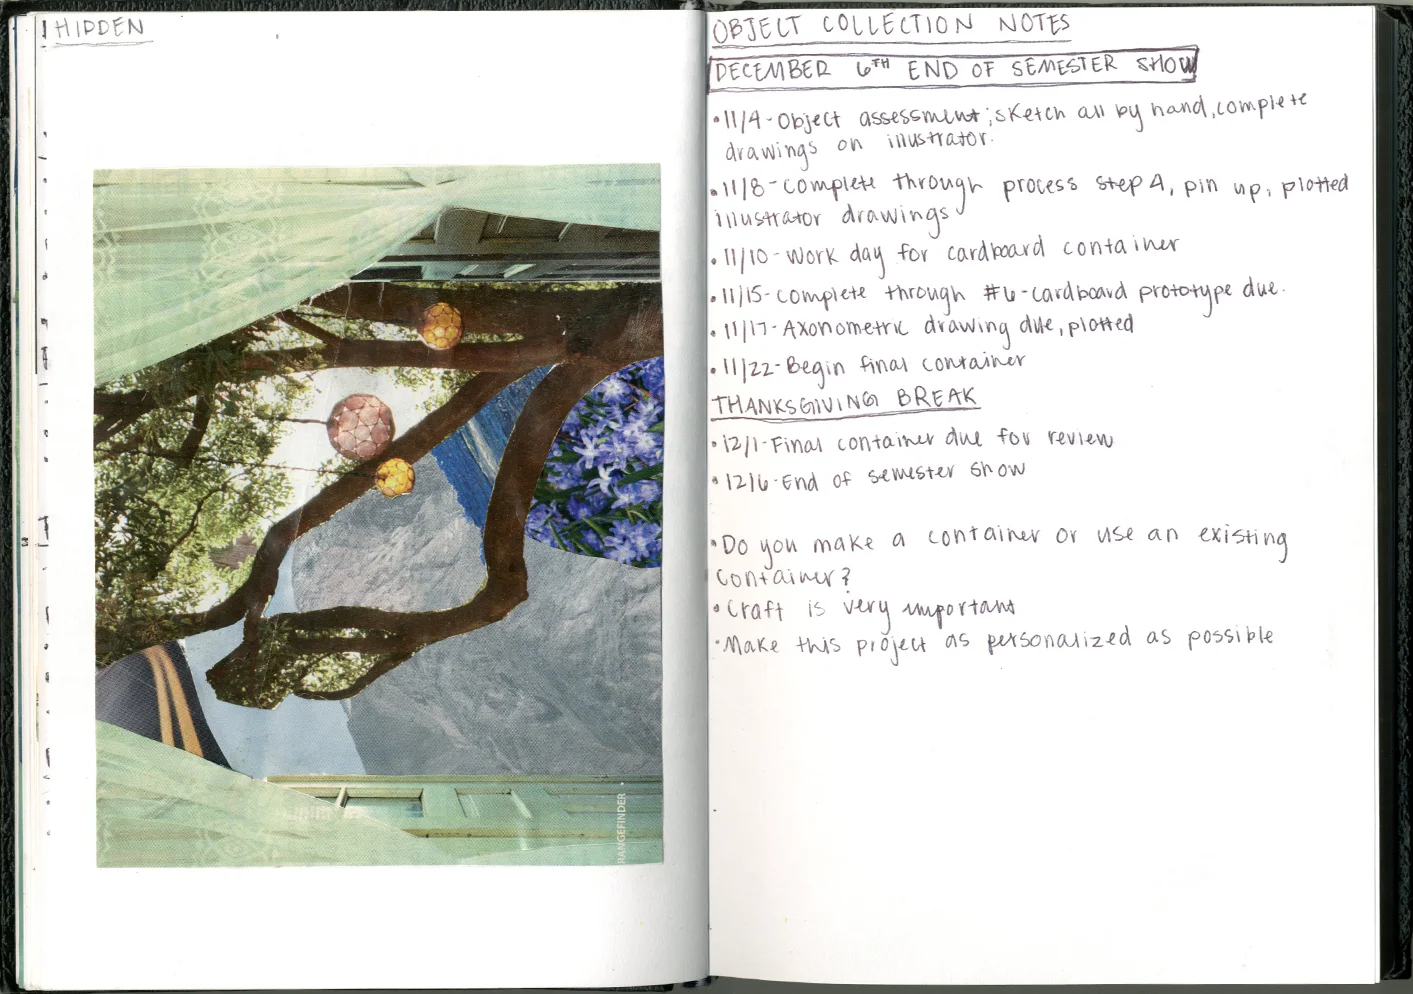 HIDDEN
RANGEFINDER
OBJECT COLLECTION NOTES
DECEMBER 6TH END OF SEMESTER SHOW
•11/4-Object assessment; sketch all by hand, complete
drawings on illustrator.
•11/8-complete through process step 4, pin up, plotted
illustrator drawings
•11/10-Work day for cardboard container
•11/15-complete through #6-cardboard prototype due.
•11/17-Axonometric drawing due, plotted
•11/22-Begin final container
THANKSGIVING BREAK
•12/1-Final container due for review
•12/6-End of semester show
•Do you make a container or use an existing
container?
•Craft is very important
•Make this project as personalized as possible